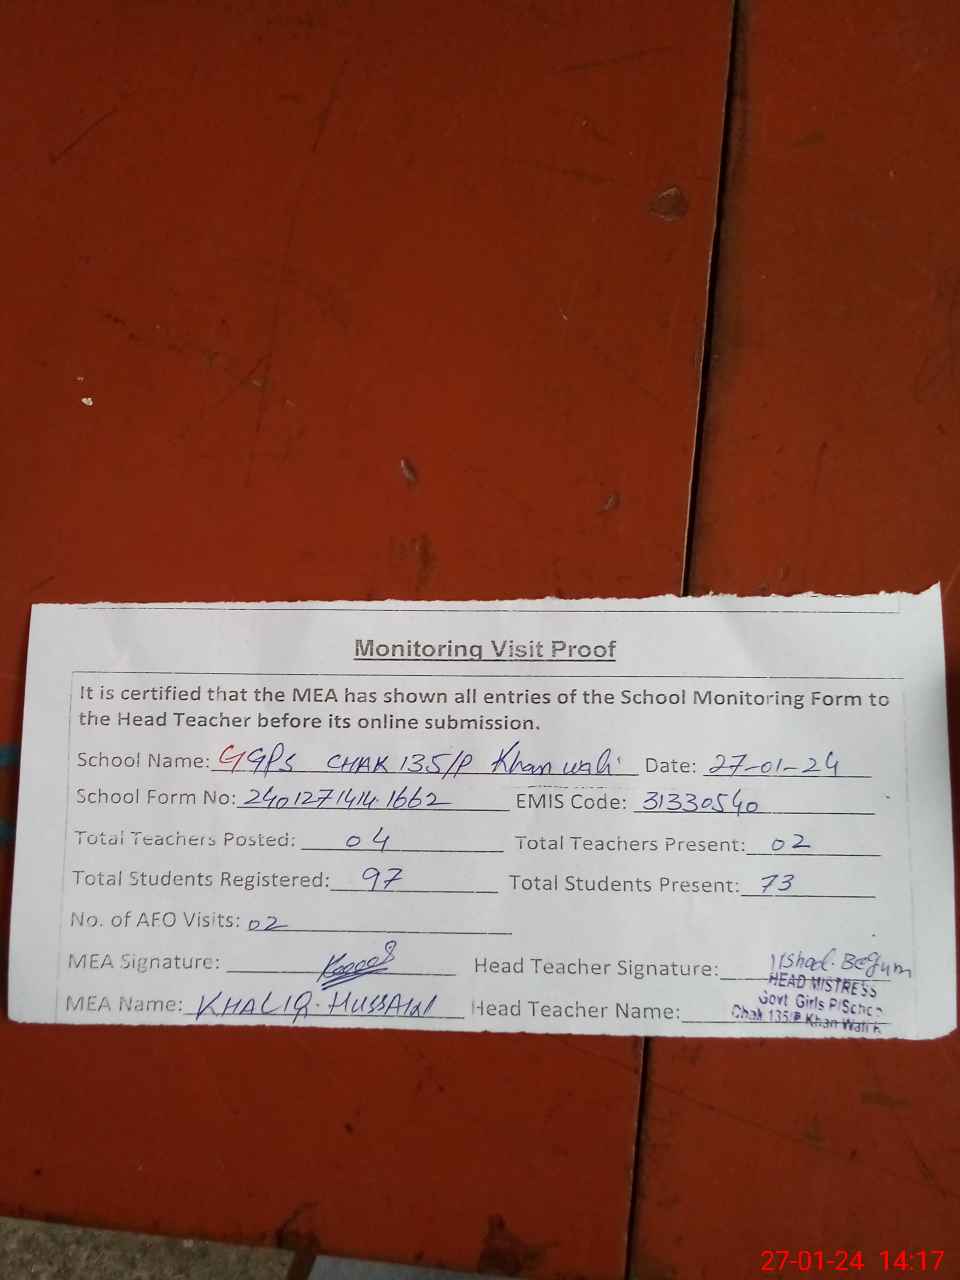 Monitoring Visit Proof
It is certified that the MEA has shown all entries of the School Monitoring Form to
the Head Teacher before its online submission.
School Name: GGPS CHAK 135/P Khan wali Date: 27-01-24
School Form No: 2401271414 1662 EMIS Code: 31330540
Total Teachers Posted: 04 Total Teachers Present: 02
Total Students Registered: 97 Total Students Present: 73
No. of AEO Visits: 02
MEA Signature: Head Teacher Signature: Begum
MEA Name: KHALIQ. HUSSAIN Head Teacher Name:
HEAD MISTRESS
Govt Girls P/School
Chak 135/P Khan Wali
27-01-24 14:17